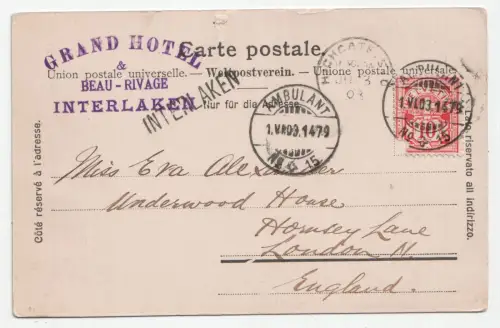 GRAND HOTEL
&
BEAU-RIVAGE
INTERLAKEN
Carte postale.
Union postale universelle. — Weltpostverein. — Unione postale universale.
Nur für die Adresse.
INTERLAKEN
HIGHGATE
03
AMBULANT
1.VI.03.1479
No. 15
AMBULANT
1.VI.03.1479
No. 15
Côté réservé à l'adresse.
Lato riservato all indirizzo.
Miss Eva Alexander
Underwood House
Hornsey Lane
London N.
England.